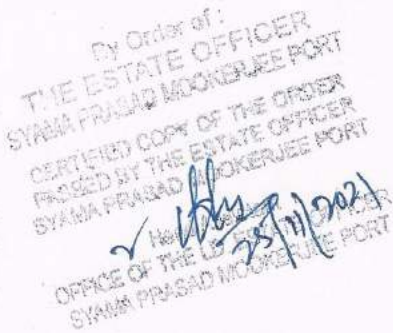 By Order of :
THE ESTATE OFFICER
SYAMA PRASAD MOOKERJEE PORT
CERTIFIED COPY OF THE ORDER
PASSED BY THE ESTATE OFFICER
SYAMA PRASAD MOOKERJEE PORT
25/11/2021
OFFICE OF THE LD. OFFICER
SYAMA PRASAD MOOKERJEE PORT